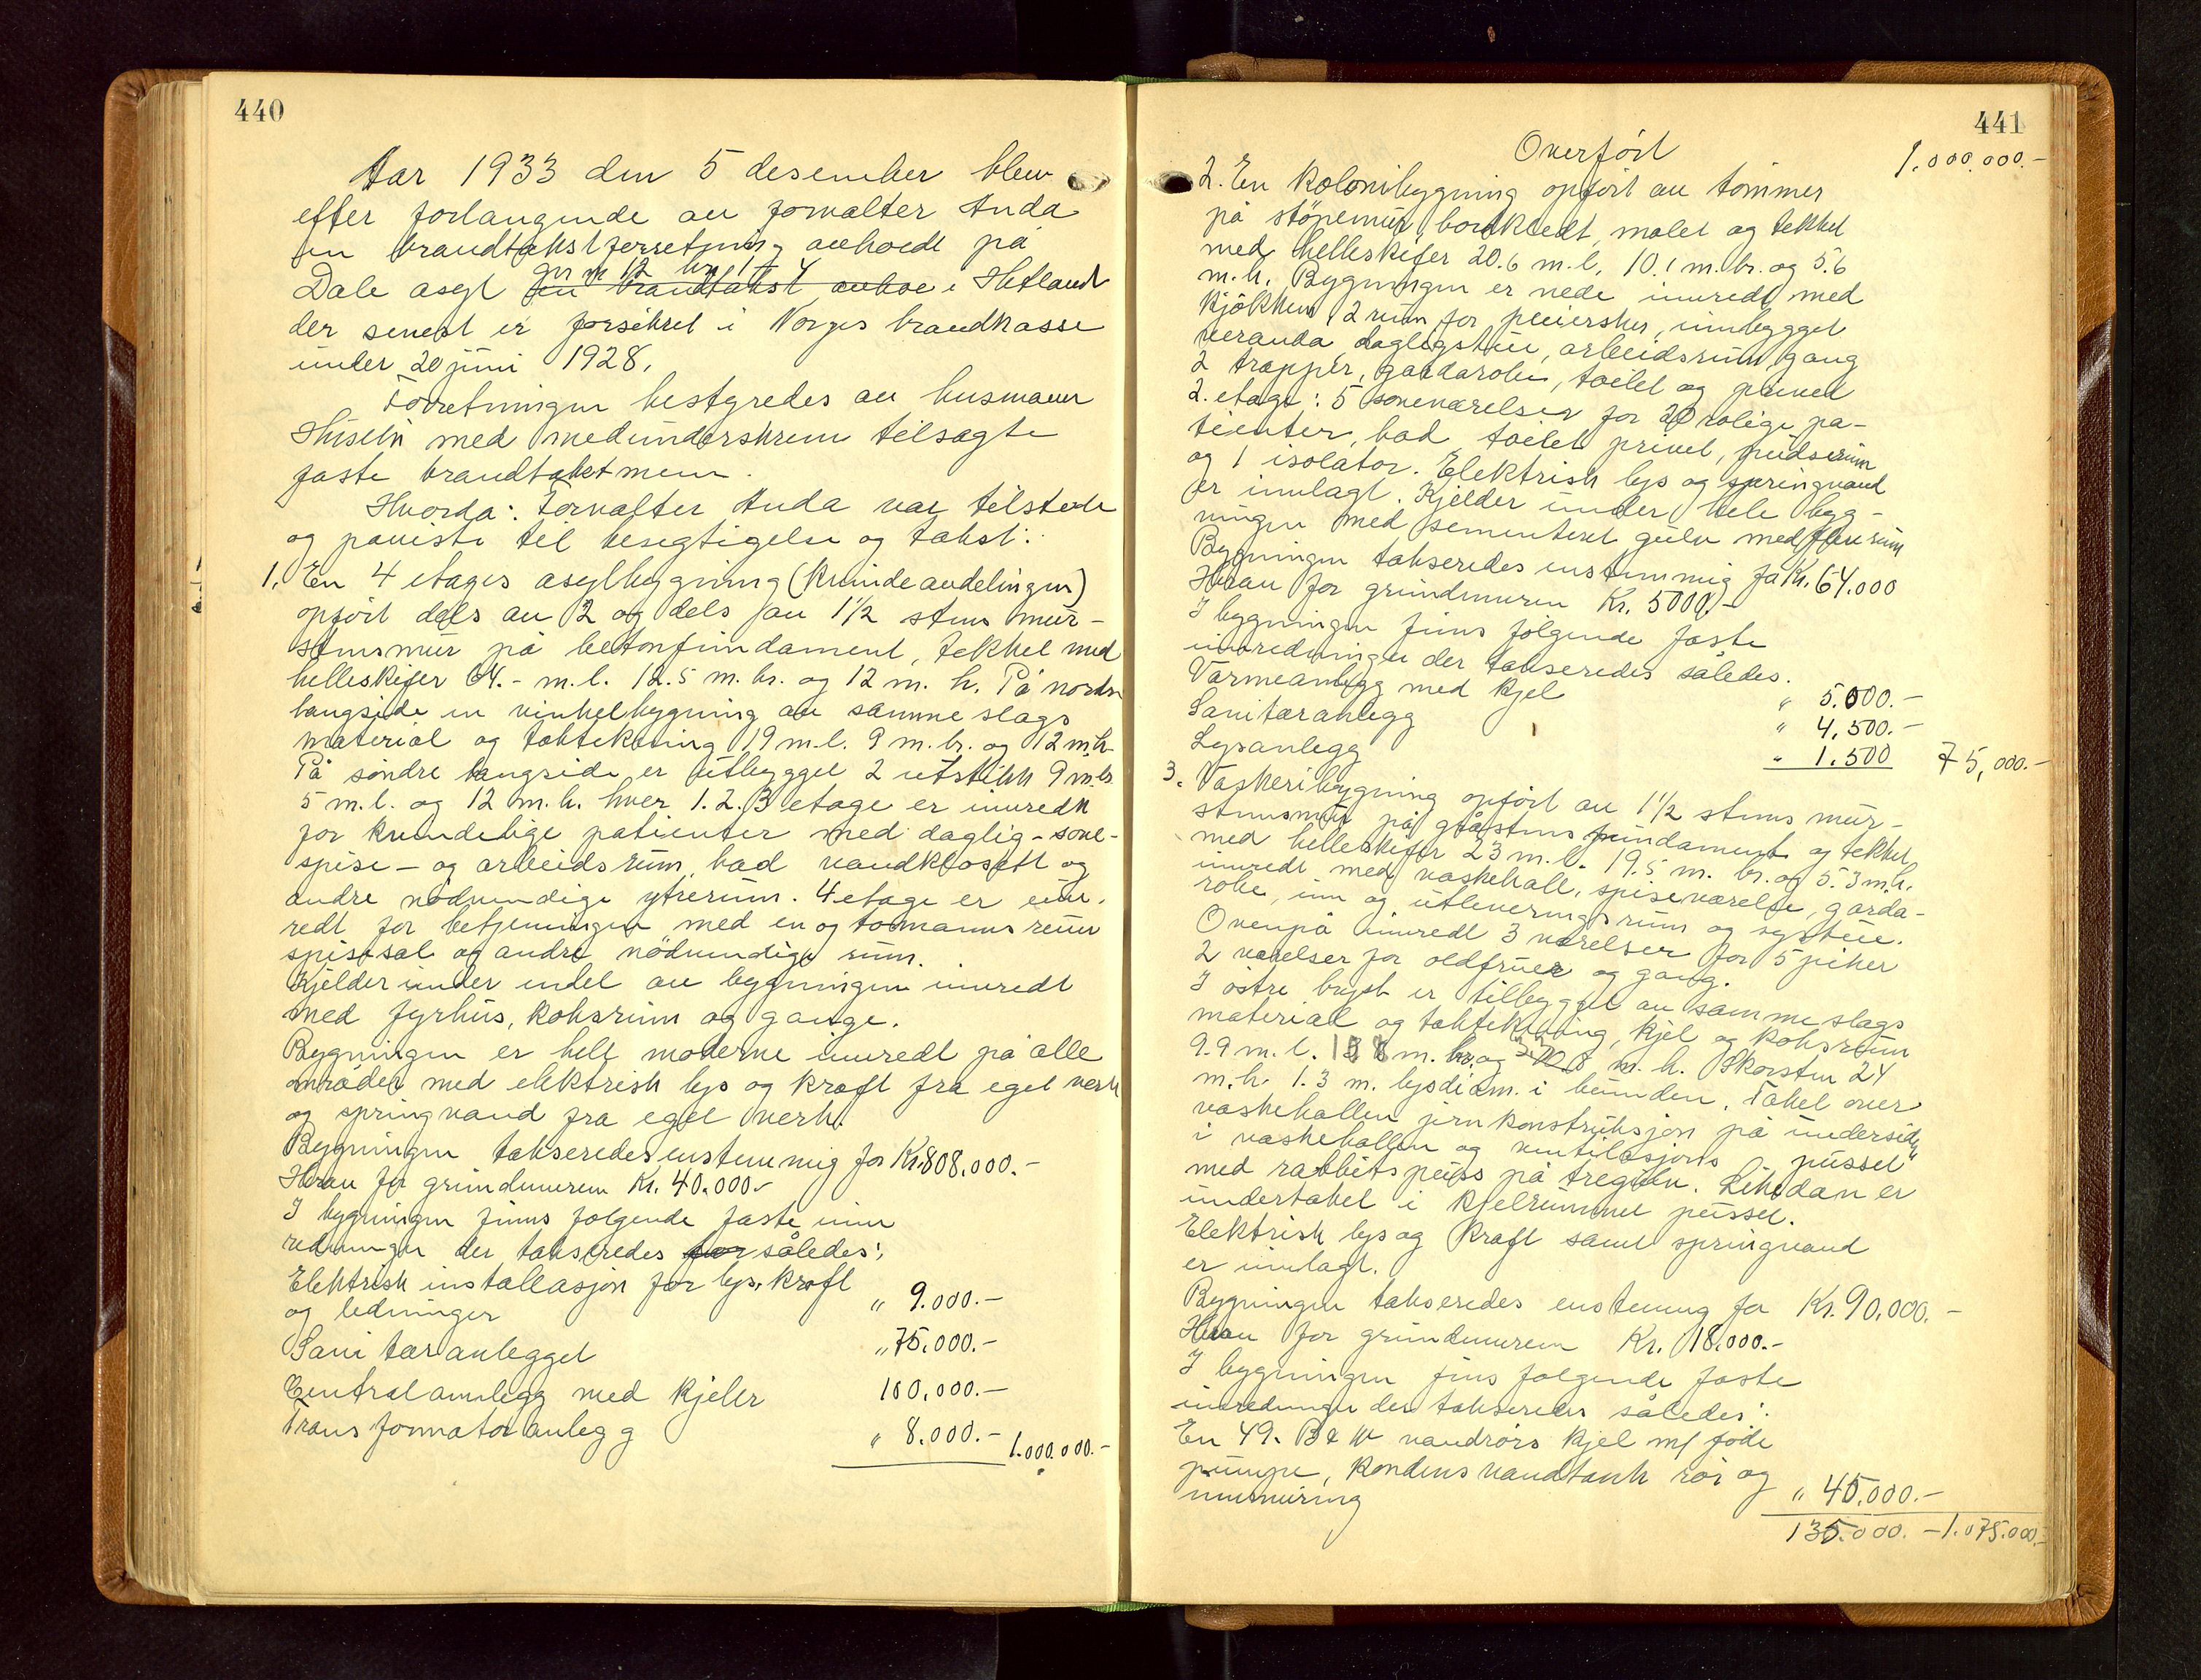 440
Aar 1933 den 5 desember blev
efter forlangende av forvalter Anda
en brandtakstforretning avholdt på
gr n 12 br 1 - 4
Dale asyl en brandtakst avhoe i Hetland
der senest er forsikret i Norges brandkasse
under 20 juni 1928.
Forretningen bestyredes av lensmann
med medunderskrevne tilsagte
faste brandtakstmenn.
Hvorda: Forvalter Anda var tilstede
og paaviste til besigtigelse og takst:
1. En 4 etages asylbygning (kvindeavdelingen)
opført dels av 2 og dels av 1 1/2 stens mur-
stensmur på betonfundament, tekket med
helleskifer 64.- m.l. 12.5 m.br. og 12 m. h. På nordre
langside en vinkelbygning av samme slags
material og taktekking 19 m.l. 9 m.br. og 12 m.h.
På søndre langside er utbygget 2 utstikk 9 m.br.
5 m.l. og 12 m.h. hver 1.2.3 etage er innredt
for kvindelige patienter med daglig-sove-
spise- og arbeidsrum, bad vandklosett og
andre nødvendige ytrerum. 4 etage er inn-
redt for betjeningen med en og tomanns rum
spisesal og andre nødvendige rum.
Kjelder under endel av bygningen innredt
med fyrhus, koksrum og gange.
Bygningen er helt moderne innredt på alle
områder med elektrisk lys og kraft fra eget verk
og springvand fra eget verk.
Bygningen takseredes enstemmig for Kr. 808.000.-
Herav for grundmuren Kr. 40.000.-
I bygningen finns følgende faste inn
redninger der takseredes for således:
Elektrisk installasjon for lys, kraft
og ledninger " 9.000.-
Sanitæranlegget " 75.000.-
Centralanlegg med kjeler 100.000.-
Transformatoranlegg " 8.000.- 1.000.000.-
441
Overført 1.000.000.-
2. En kolonibygning opført av tømmer
på støpemur, bordklædt, malet og tekket
med helleskifer 20.6 m.l. 10.1 m.br. og 5.6
m.h. Bygningen er nede innredt med
kjøkken, 2 rum for pleiersker, innbygget
veranda dagligstue, arbeidsrum, gang
2 trapper, gardarobe, toilet og privet
2. etage: 5 soveværelser for 20 rolige pa-
tienter, bad, toilet privet, pudserum
og 1 isolator. Elektrisk lys og springvand
er innlagt. Kjelder under hele byg-
ningen med sementeret gulv med flere rum
Bygningen takseredes enstemmig for Kr. 64.000
Herav for grundmuren Kr. 5000.-
I bygningen finns følgende faste
innredninger der takseredes således.
Varmeanlegg med kjel " 5.000.-
Sanitæranlegg " 4.500.-
Lysanlegg " 1.500 75,000.-
3. Vaskeribygning opført av 1 1/2 stens mur-
stensmur på gråstens fundament og tekket
med helleskifer 23 m.l. 19.5 m. br. og 5.3 m.h.
innredt med vaskehall, spiseværelse, garda-
robe, inn og utleveringsrum og systue.
Ovenpå innredt 3 værelser for 5 piker
2 værelser for oldfruer og gang.
I østre bryst er tilbygget av samme slags
material og taktekking, kjel og koksrum
9.9 m.l. m. br. og m. h. Skorsten 24
m.h. 1.3 m. lysdiam. i bunnen. Taket over
vaskehallen jernkonstruksjon på underside
i vaskehallen og ventilasjons pusset
med rabbitspuss på tregulv. Likedan er
undertaket i kjelrummet pusset.
Elektrisk lys og kraft samt springvand
er innlagt.
Bygningen takseredes enstemmig for Kr. 90,000.-
Herav for grundmuren Kr. 18.000.-
I bygningen fins følgende faste
innredninger der takseredes således:
En 49. B & W vandrørs kjel m/ føde
pumpe, kondensvandtank rør og
innmuring " 45.000.-
135.000.- 1.075.000.-